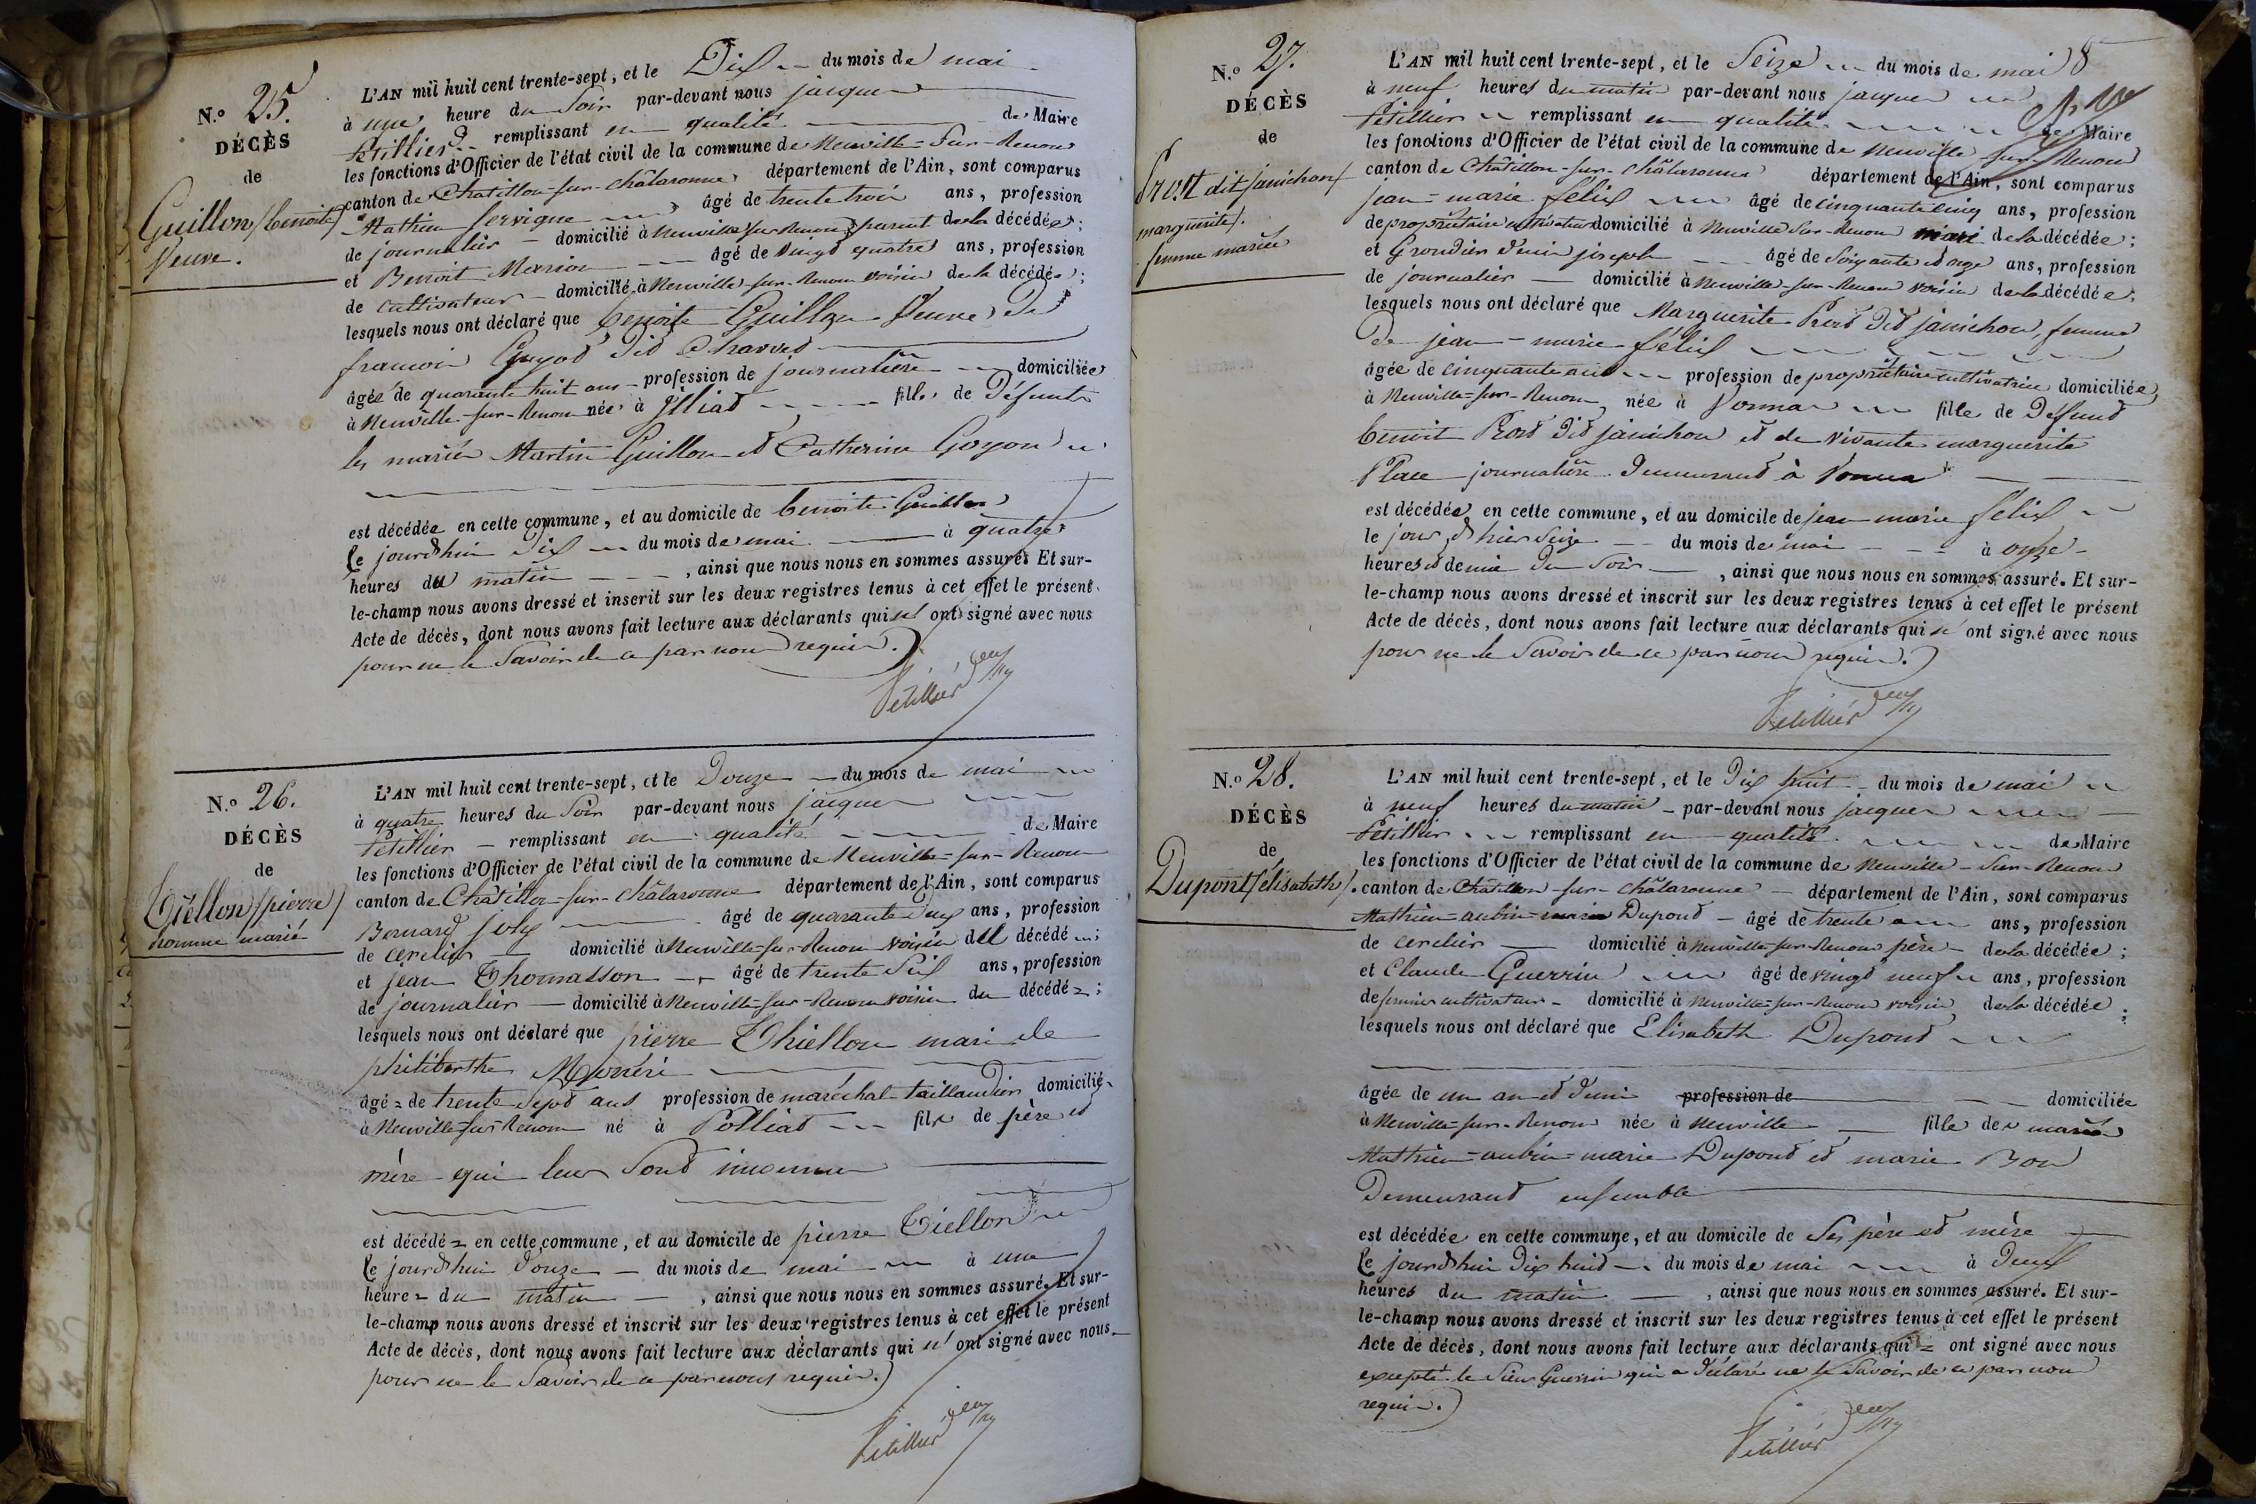 N.º 25.
DÉCÈS
de
Guillon (benoite)
Veuve.
L'AN mil huit cent trente-sept, et le Dix du mois de mai
à une heure du Soir par-devant nous jacques
Petillier remplissant en qualité de Maire
les fonctions d'Officier de l'état civil de la commune de Neuville-Sur-Renom
canton de Châtillon-sur-châlaronne département de l'Ain, sont comparus
Mathieu servigne âgé de trente trois ans, profession
de journalier domicilié à Neuville sur Renom parent de la décédée;
et Benoit Marion âgé de vingt quatre ans, profession
de cultivateur domicilié à Neuville-sur-Renom voisin de la décédée;
lesquels nous ont déclaré que benoite Guillon Veuve De
francois Guyod Did Charved
âgée de quarante huit ans profession de journalière domiciliée
à Neuville-sur-Renom née à Illiad fille de Défunts
les mariés Martin Guillon et Catherine Goyon
est décédée en cette commune, et au domicile de benoite Guillon
Le jourd'hui Dix du mois de mai à quatre
heures du matin, ainsi que nous nous en sommes assuré. Et sur-
le-champ nous avons dressé et inscrit sur les deux registres tenus à cet effet le présent
Acte de décès, dont nous avons fait lecture aux déclarants qui n' ont signé avec nous
pour ne le Savoir de ce par nous requis.
Petillier
N.º 26.
DÉCÈS
de
Tiellon (pierre)
homme marié
L'AN mil huit cent trente-sept, et le Douze du mois de mai
à quatre heures du Soir par-devant nous jacques
Petillier remplissant en qualité de Maire
les fonctions d'Officier de l'état civil de la commune de Neuville-sur-Renom
canton de Châtillon-sur-châlaronne département de l'Ain, sont comparus
Bernard joly âgé de quarante Deux ans, profession
de cerclier domicilié à Neuville-sur-Renom voisin du décédé;
et jean Thomasson âgé de trente Six ans, profession
de journalier domicilié à Neuville-sur-Renom voisin du décédé;
lesquels nous ont déclaré que pierre Thiellon mari de
philiberthe
âgé de trente Sept ans profession de maréchal taillandier domicilié
à Neuville-sur-Renom né à Polliat fils de père et
mère qui leur Sont inconnus
est décédé en cette commune, et au domicile de pierre Tiellon
Le jourd'hui Douze du mois de mai à une
heure du matin, ainsi que nous nous en sommes assuré. Et sur-
le-champ nous avons dressé et inscrit sur les deux registres tenus à cet effet le présent
Acte de décès, dont nous avons fait lecture aux déclarants qui n' ont signé avec nous
pour ne le Savoir de ce par nous requis.
Petillier
N.º 27.
DÉCÈS
de
Prost dit janichon
marguerite).
femme mariée
L'AN mil huit cent trente-sept, et le Seize du mois de mai 8
à neuf heures du matin par-devant nous jacques
Petillier remplissant en qualité de Maire
les fonctions d'Officier de l'état civil de la commune de Neuville-sur-Renom
canton de Châtillon-sur-châlaronne département de l'Ain, sont comparus
jean-marie félix âgé de cinquante cinq ans, profession
de propriétaire cultivateur domicilié à Neuville-Sur-Renom mari de la décédée;
et Grondier Denis joseph âgé de Soixante et onze ans, profession
de journalier domicilié à Neuville-sur-Renom voisin de la décédée;
lesquels nous ont déclaré que Marguerite Prost Did janichon, femme
De jean-marie félix
âgée de cinquante ans profession de propriétaire cultivatrice domiciliée
à Neuville-sur-Renom née à Vonnas fille de Défund
benoit Prost Did janichon et de vivante marguerite
Place journalière Demeurand à Vonnas
est décédée en cette commune, et au domicile de jean marie félix
le jour d'hier Seize du mois de mai à onze
heures et demie Du Soir, ainsi que nous nous en sommes assuré. Et sur-
le-champ nous avons dressé et inscrit sur les deux registres tenus à cet effet le présent
Acte de décès, dont nous avons fait lecture aux déclarants qui n' ont signé avec nous
pour ne le Savoir de ce par nous requis.
Petillier
N.º 28.
DÉCÈS
de
Dupont (élisabeth).
L'AN mil huit cent trente-sept, et le Dix huit du mois de mai
à neuf heures du matin par-devant nous jacques
Petillier remplissant en qualité de Maire
les fonctions d'Officier de l'état civil de la commune de Neuville-Sur-Renom
canton de Châtillon-sur-châlaronne département de l'Ain, sont comparus
Mathieu-aubin-marie Dupond âgé de trente ans, profession
de cerclier domicilié à Neuville-sur-Renom père de la décédée;
et Claude Guerrin âgé de vingt neuf ans, profession
de fermier cultivateur domicilié à Neuville-sur-Renom voisin de la décédée;
lesquels nous ont déclaré que Elisabeth Dupond
âgée de un an et Demi profession de domiciliée
à Neuville-sur-Renom née à Neuville fille des mariés
Mathieu-aubin-marie Dupond et marie Bon
Demeurand ensemble
est décédée en cette commune, et au domicile de Ses père et mère
Le jourd'hui Dix huit du mois de mai à Deux
heures du matin, ainsi que nous nous en sommes assuré. Et sur-
le-champ nous avons dressé et inscrit sur les deux registres tenus à cet effet le présent
Acte de décès, dont nous avons fait lecture aux déclarants qui ont signé avec nous
excepté le Sieur Guerrin qui a Déclaré ne le Savoir de ce par nous
requis.
Petillier